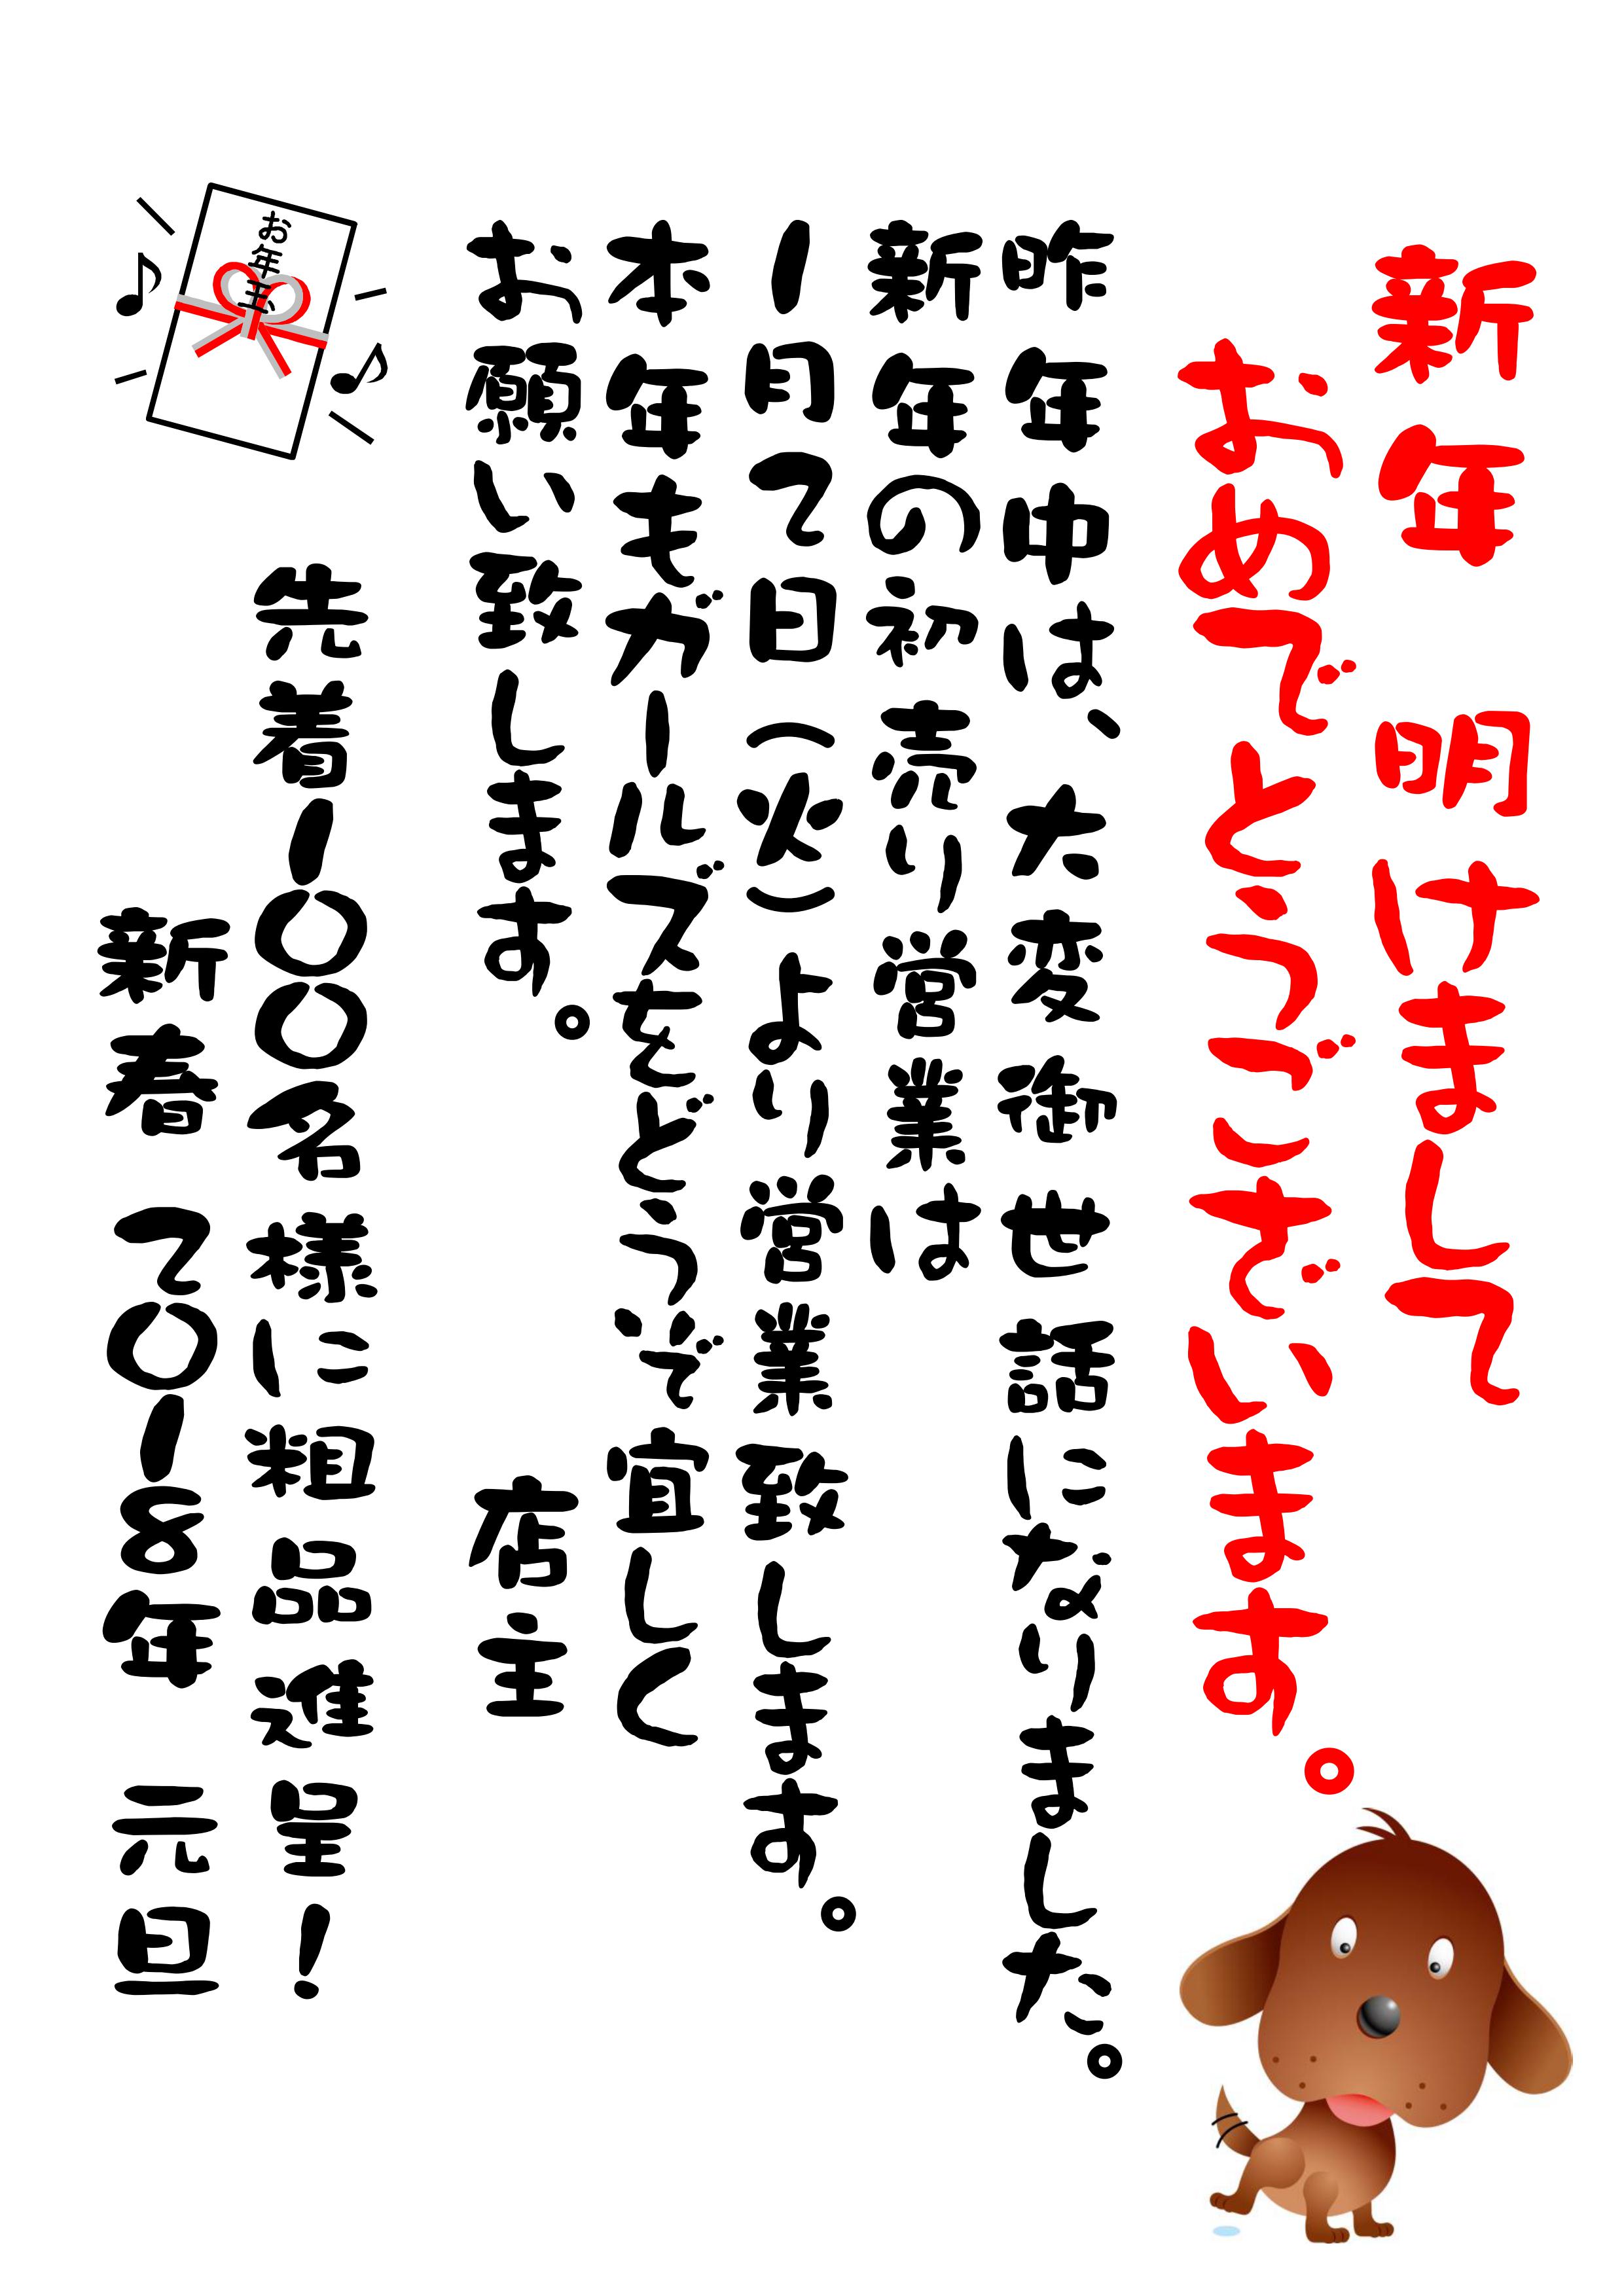 新年 明けまして
おめでとうございます。
昨年中は、大変御世話になりました。
新年の初売り営業は
1月2日（火）より営業致します。
本年もガールズをどうぞ宜しく
お願い致します。 店主
先着100名様に粗品進呈！
新春 2018年 元旦
お年玉